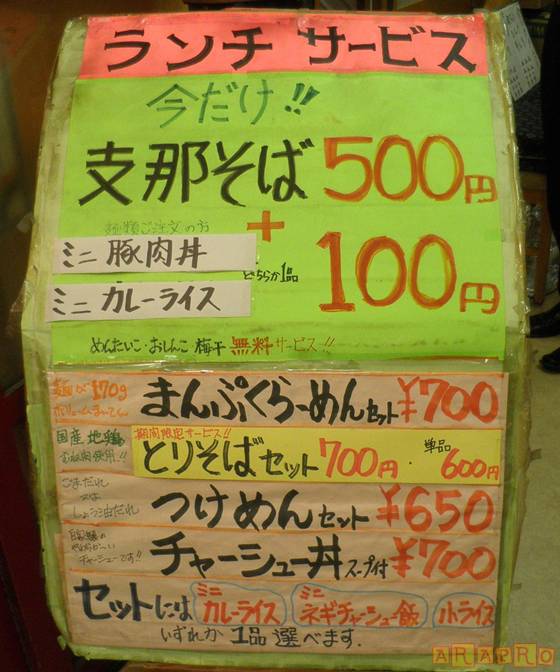 ランチ サービス
今だけ!!
支那そば 500円
麺類ご注文の方
+
ミニ 豚肉丼
ミニ カレーライス
どちらか1品
100円
めんたいこ・おしんこ 梅干 無料サービス!!
麺が170g
まんぷくらーめんセット ¥700
国産地鶏
期間限定サービス!!
とりそばセット 700円 単品 600円
ごまだれ
又は
しょうゆ油だれ
つけめんセット ¥650
チャーシュー丼 スープ付 ¥700
チャーシューです!!
セットには ミニ カレーライス ミニ ネギチャーシュー飯 小ライス
いずれか 1品 選べます.
ARAPRO